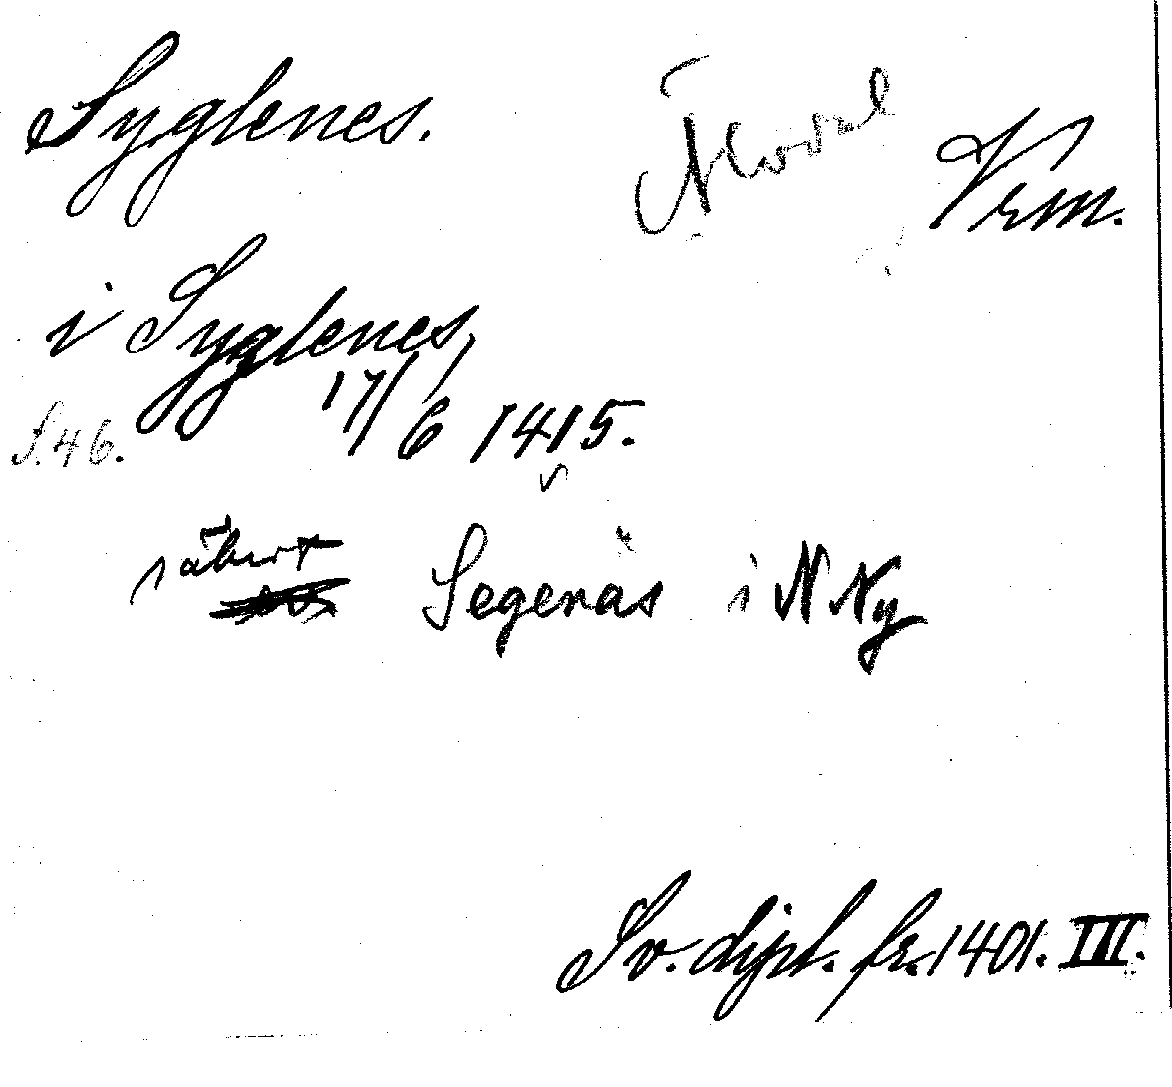 Syglenes. Älvdal Vrm.
i Syglenes,
S. 46. 17/6 1415.
säkert
Segenäs i N Ny
Sv. dipl. fr. 1401. III.